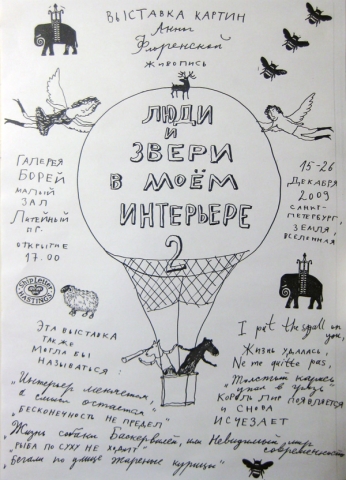 ВЫСТАВКА КАРТИН
Анны
Флоренской
ЖИВОПИСЬ
ЛЮДИ
И
ЗВЕРИ
В МОЁМ
ИНТЕРЬЕРЕ
2
ГАЛЕРЕЯ
БОРЕЙ
МАЛЫЙ
ЗАЛ
ЛИТЕЙНЫЙ
ПР.
ОТКРЫТИЕ
17.00
15-26
ДЕКАБРЯ
2009
САНКТ-
ПЕТЕРБУРГ,
ЗЕМЛЯ,
ВСЕЛЕННАЯ
Ship Letter
HASTINGS
ЭТА ВЫСТАВКА
ТАКЖЕ
МОГЛА БЫ
НАЗЫВАТЬСЯ:
"Интерьер меняется,
а слоны остаются"
"БЕСКОНЕЧНОСТЬ НЕ ПРЕДЕЛ"
"Жизнь собаки Баскервилей, или Невидимый мир
современности"
"РЫБА ПО СУХУ НЕ ХОДИТ"
"Бегали по улице жареные курицы"
I put the spell on
you,
Жизнь удалась,
Ne me quitte pas,
"Толстый карась
упал в грязь"
КОРОЛЬ ЛИР ПОЯВЛЯЕТСЯ
И СНОВА
ИСЧЕЗАЕТ